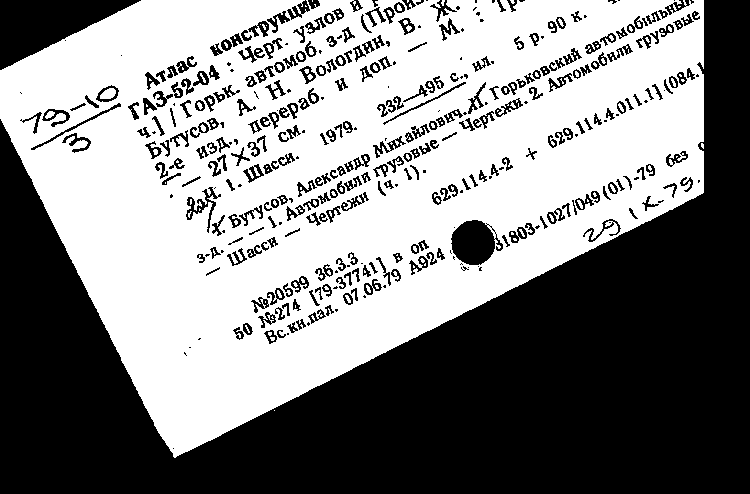 79-10
3
Атлас конструкций
ГАЗ-52-04 : Черт. узлов и
ч.] / Горьк. автомоб. з-д (Произ
Бутусов, А. Н. Вологдин, В. Ж.
2-е изд., перераб. и доп. — М. :
. — 27×37 см.
Ч. 1. Шасси. 1979. 232—495 с., ил. 5 р. 90 к.
I. Бутусов, Александр Михайлович. II. Горьковский автомобильный
з-д. — — 1. Автомобили грузовые — Чертежи. 2. Автомобили грузовые
— Шасси — Чертежи (ч. 1).
629.114.4-2 + 629.114.4.011.1] (084.1
№20599 36.3.3
50 №274 [79-37741] в оп 31803-1027/049(01)-79 без
Вс.кн.пал. 07.06.79 А924
29 IX-79.